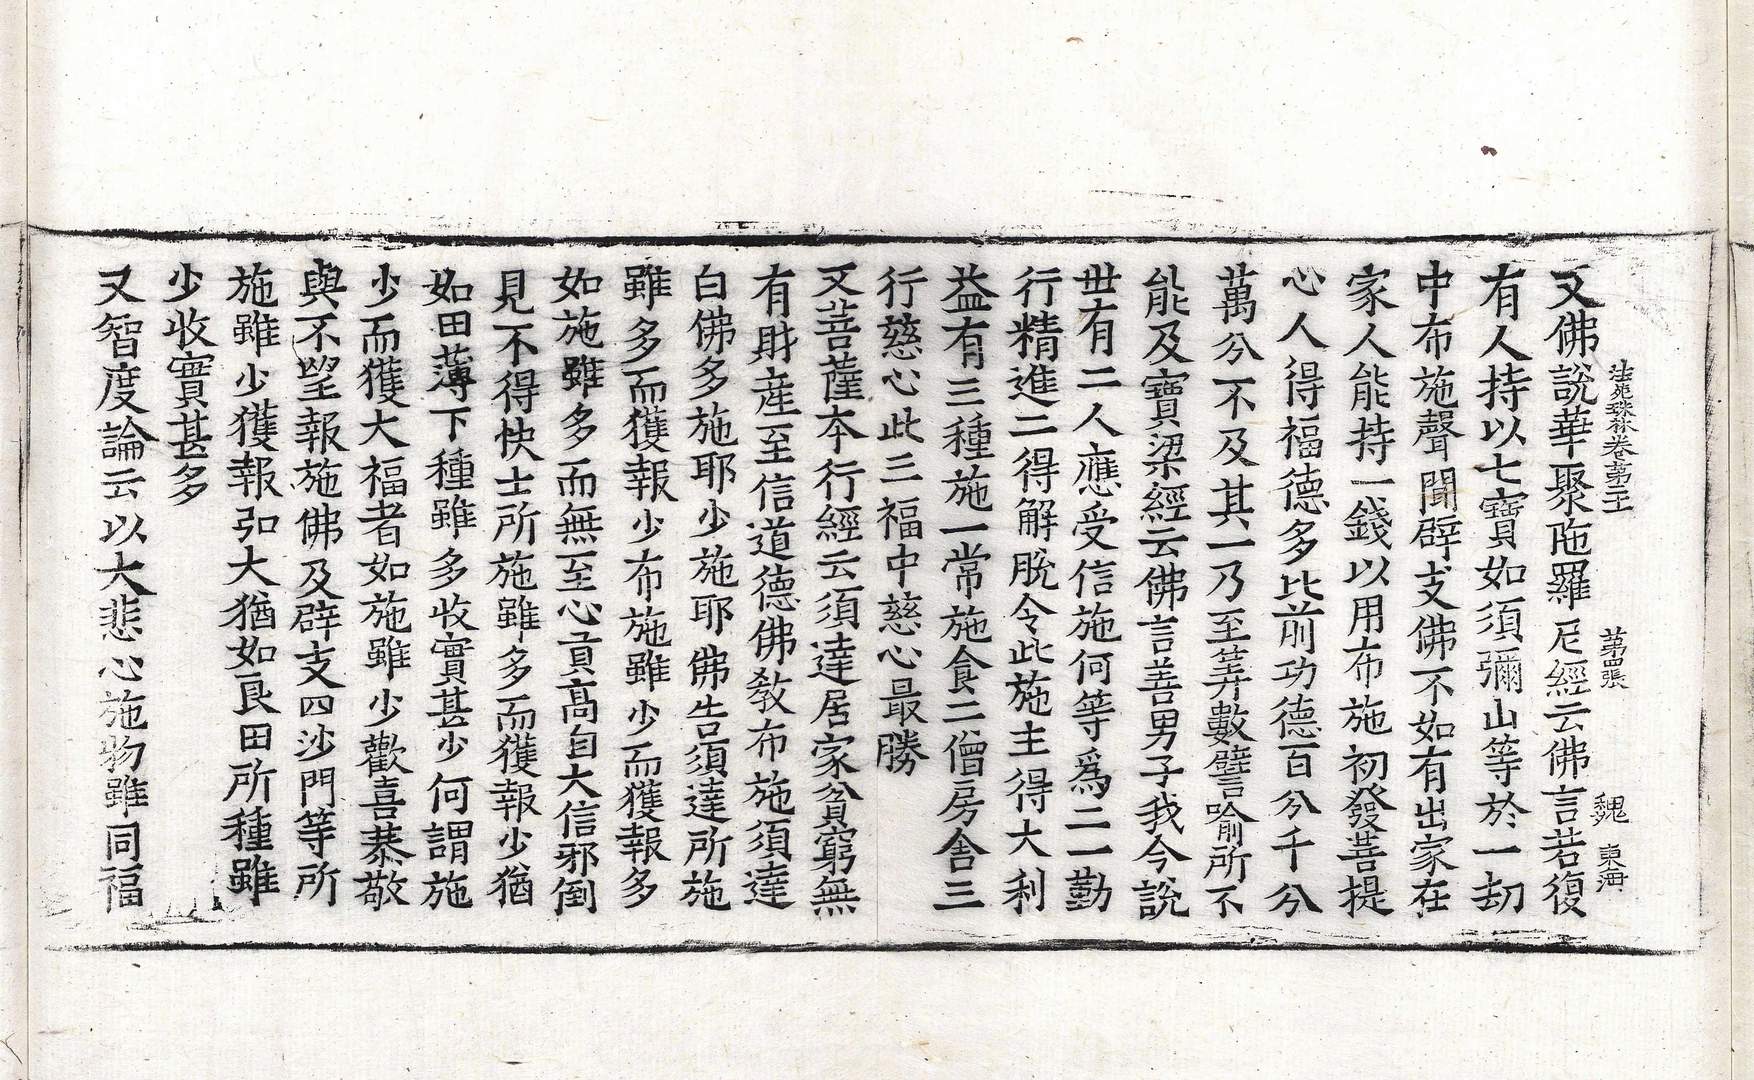 法苑珠林卷苐 苐四張 魏 東海
又佛說華聚陁羅尼經云佛言若復
有人持以七寶如須彌山等於一劫
中布施聲聞辟支佛不如有出家在
家人能持一錢以用布施初發菩提
心人得福德多比前功德百分千分
萬分不及其一乃至筭數譬喻所不
能及寶梁經云佛言善男子我今說
世有二人應受信施何等為二一勤
行精進二得解脫令此施主得大利
益有三種施一常施食二僧房舍三
行慈心此三福中慈心最勝
又菩薩本行經云須達居家貧窮無
有財產至信道德佛教布施須達
白佛多施耶少施耶佛告須達所施
雖多而獲報少布施雖少而獲報多
如施雖多而無至心貢高自大信邪倒
見不得快士所施雖多而獲報少猶
如田薄下種雖多收實甚少何謂施
少而獲大福者如施雖少歡喜恭敬
與不望報施佛及辟支四沙門等所
施雖少獲報弘大猶如良田所種雖
少收實甚多
又智度論云以大悲心施物雖同福